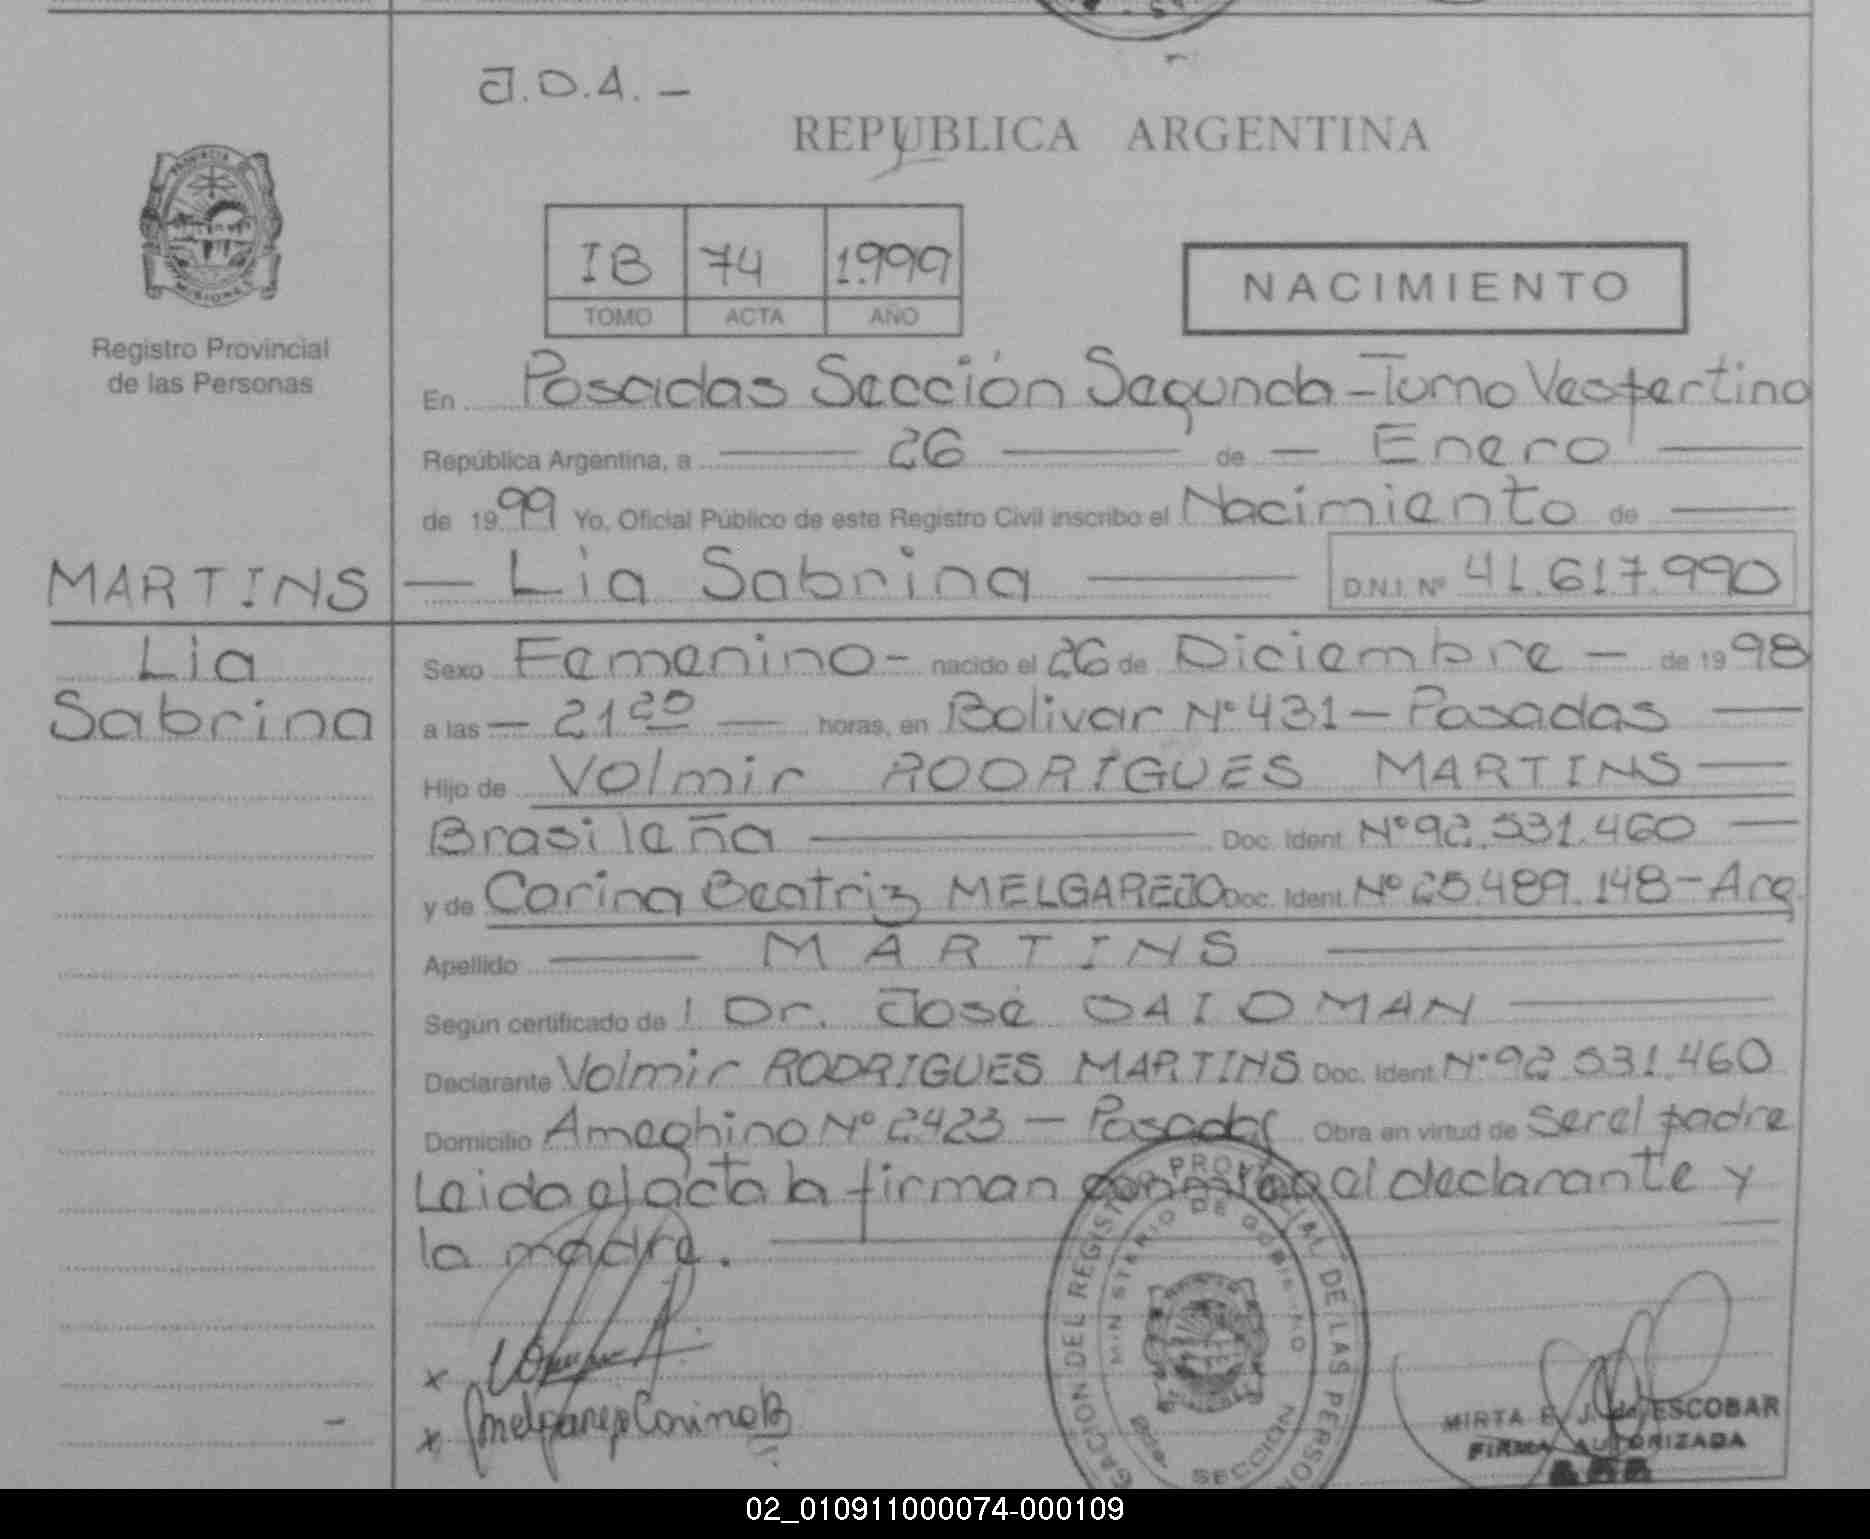 J.D.A. -
REPUBLICA ARGENTINA
IB 74 1.999
TOMO ACTA AÑO
NACIMIENTO
Registro Provincial
de las Personas
En Posadas Sección Segunda - Turno Vespertino
República Argentina, a 26 de Enero
de 1999 Yo, Oficial Público de este Registro Civil inscribo el Nacimiento de
MARTINS Lia Sabrina D.N.I. Nº 41.617.990
Lia
Sabrina
Sexo Femenino - nacido el 26 de Diciembre - de 1998
a las 21 20 horas, en Bolivar Nº 431 - Posadas
Hijo de Volmir RODRIGUES MARTINS
Brasileña Doc. Ident. Nº 92.531.460
y de Carina Beatriz MELGAREJO Doc. Ident. Nº 25.489.148 - Arg.
Apellido MARTINS
Según certificado de Dr. José
Declarante Volmir RODRIGUES MARTINS Doc. Ident. Nº 92.531.460
Domicilio Ameghino Nº 2423 - Posadas Obra en virtud de ser el padre
Leida el acta la firman conmigo el declarante y
la madre.
Melgarejo Carina B
REGISTRO PROVINCIAL DE LAS PERSONAS
MINISTERIO DE GOBIERNO
SECCION
MIRTA E. J. de ESCOBAR
FIRMA AUTORIZADA
02_010911000074-000109